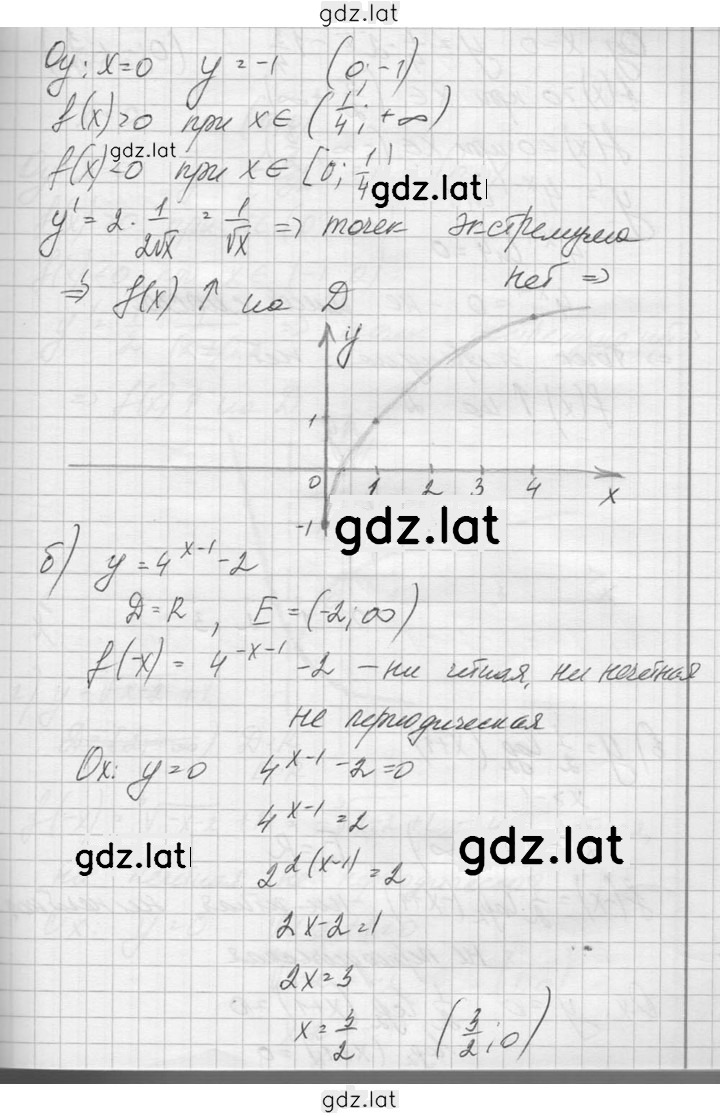 gdz.lat
Оу: x=0 y=-1 (0; -1)
f(x)>0 при x∈ (1/4; +∞)
gdz.lat
f(x)<0 при x∈ [0; 1/4)
gdz.lat
y' = 2 · 1/(2√x) = 1/√x ⇒ точек экстремума
нет ⇒
⇒ f(x) ↑ на D
y
1
0 1 2 3 4 x
-1
gdz.lat
б) y = 4^(x-1) - 2
D = R, E = (-2; ∞)
f(-x) = 4^(-x-1) - 2 - ни чётная, ни нечётная
не периодическая
Ox: y=0 4^(x-1) - 2 = 0
4^(x-1) = 2
gdz.lat
gdz.lat
2^(2(x-1)) = 2
2x-2=1
2x=3
x = 3/2 (3/2; 0)
gdz.lat